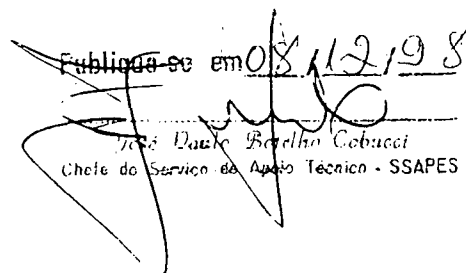 Publique-se em 08,12,98
José Paulo Botelho Cobucci
Chefe do Serviço de Apoio Técnico - SSAPES